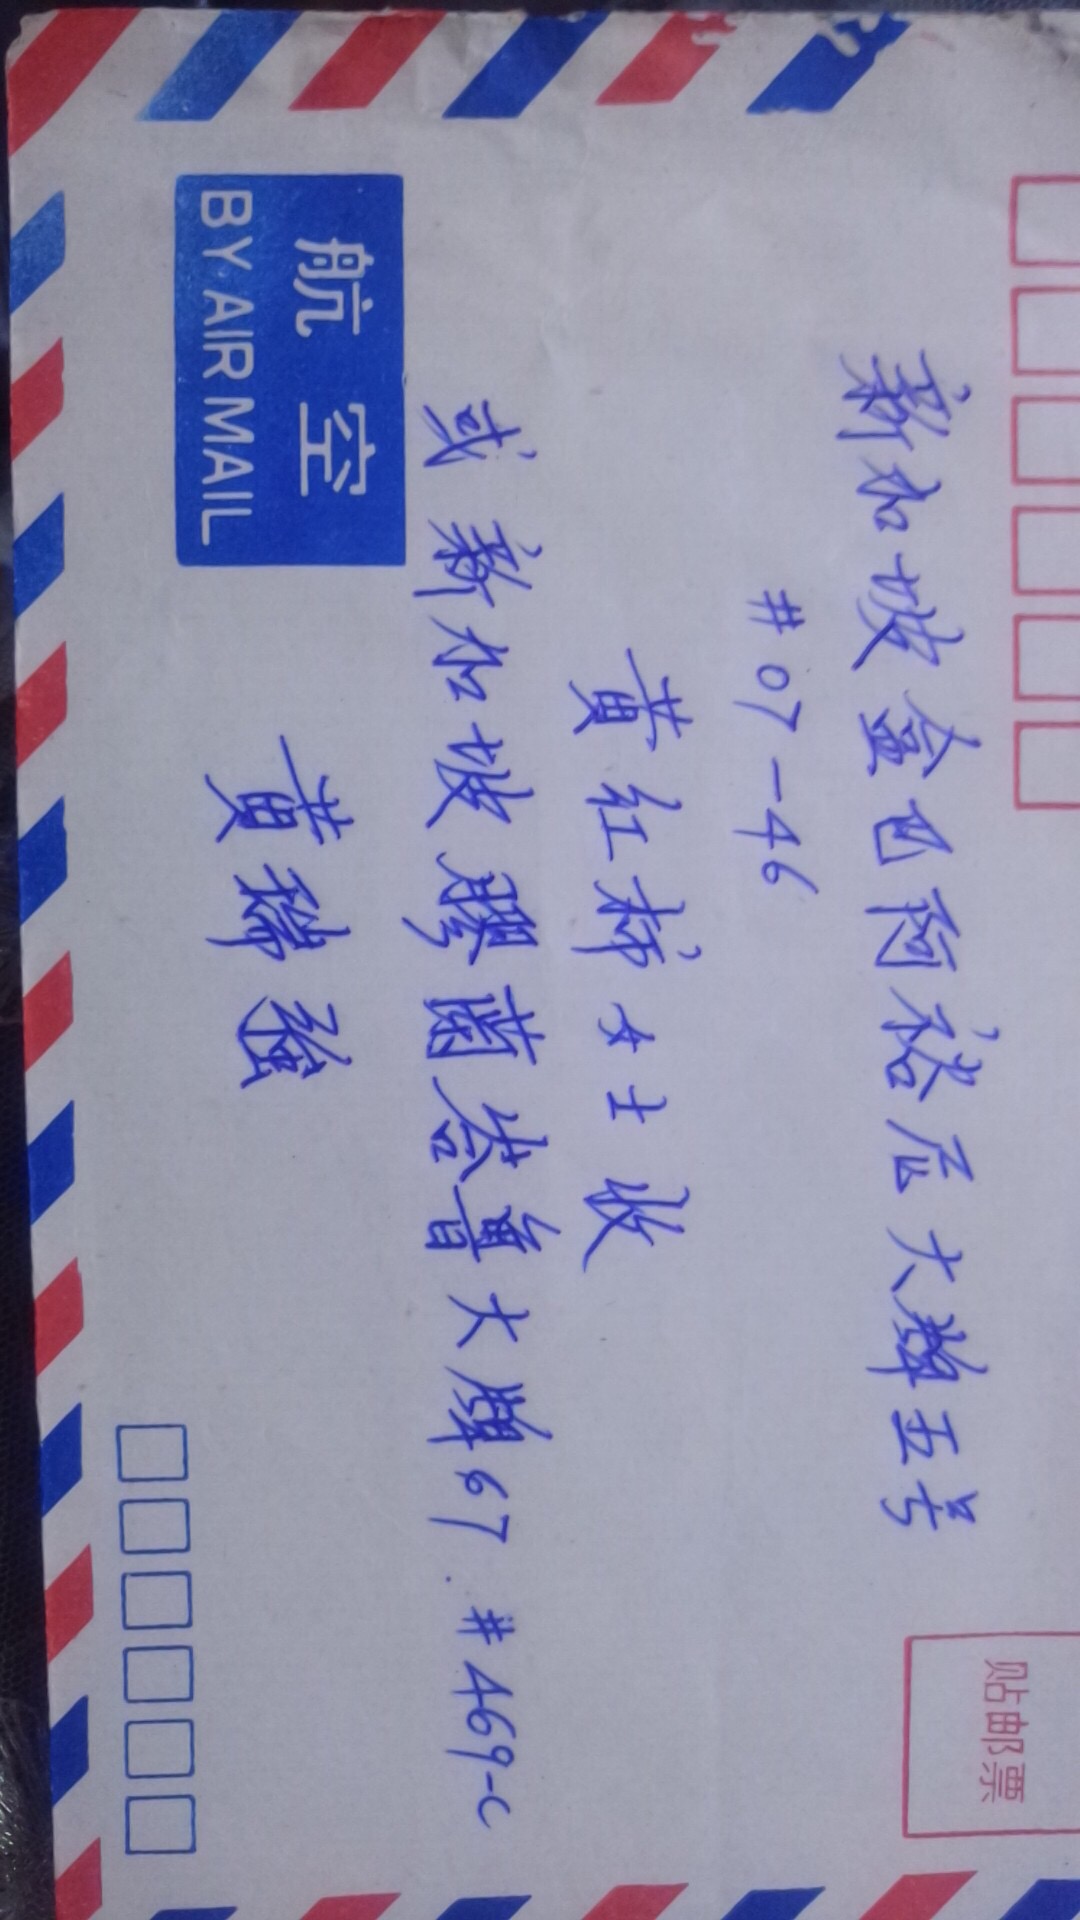 贴邮票
新加坡金巴阿裕后大牌五号
#07-46
黄红柳女士收
或新加坡 茵岩鲁大牌67.#469-C
航空
BY AIR MAIL
黄瑞强